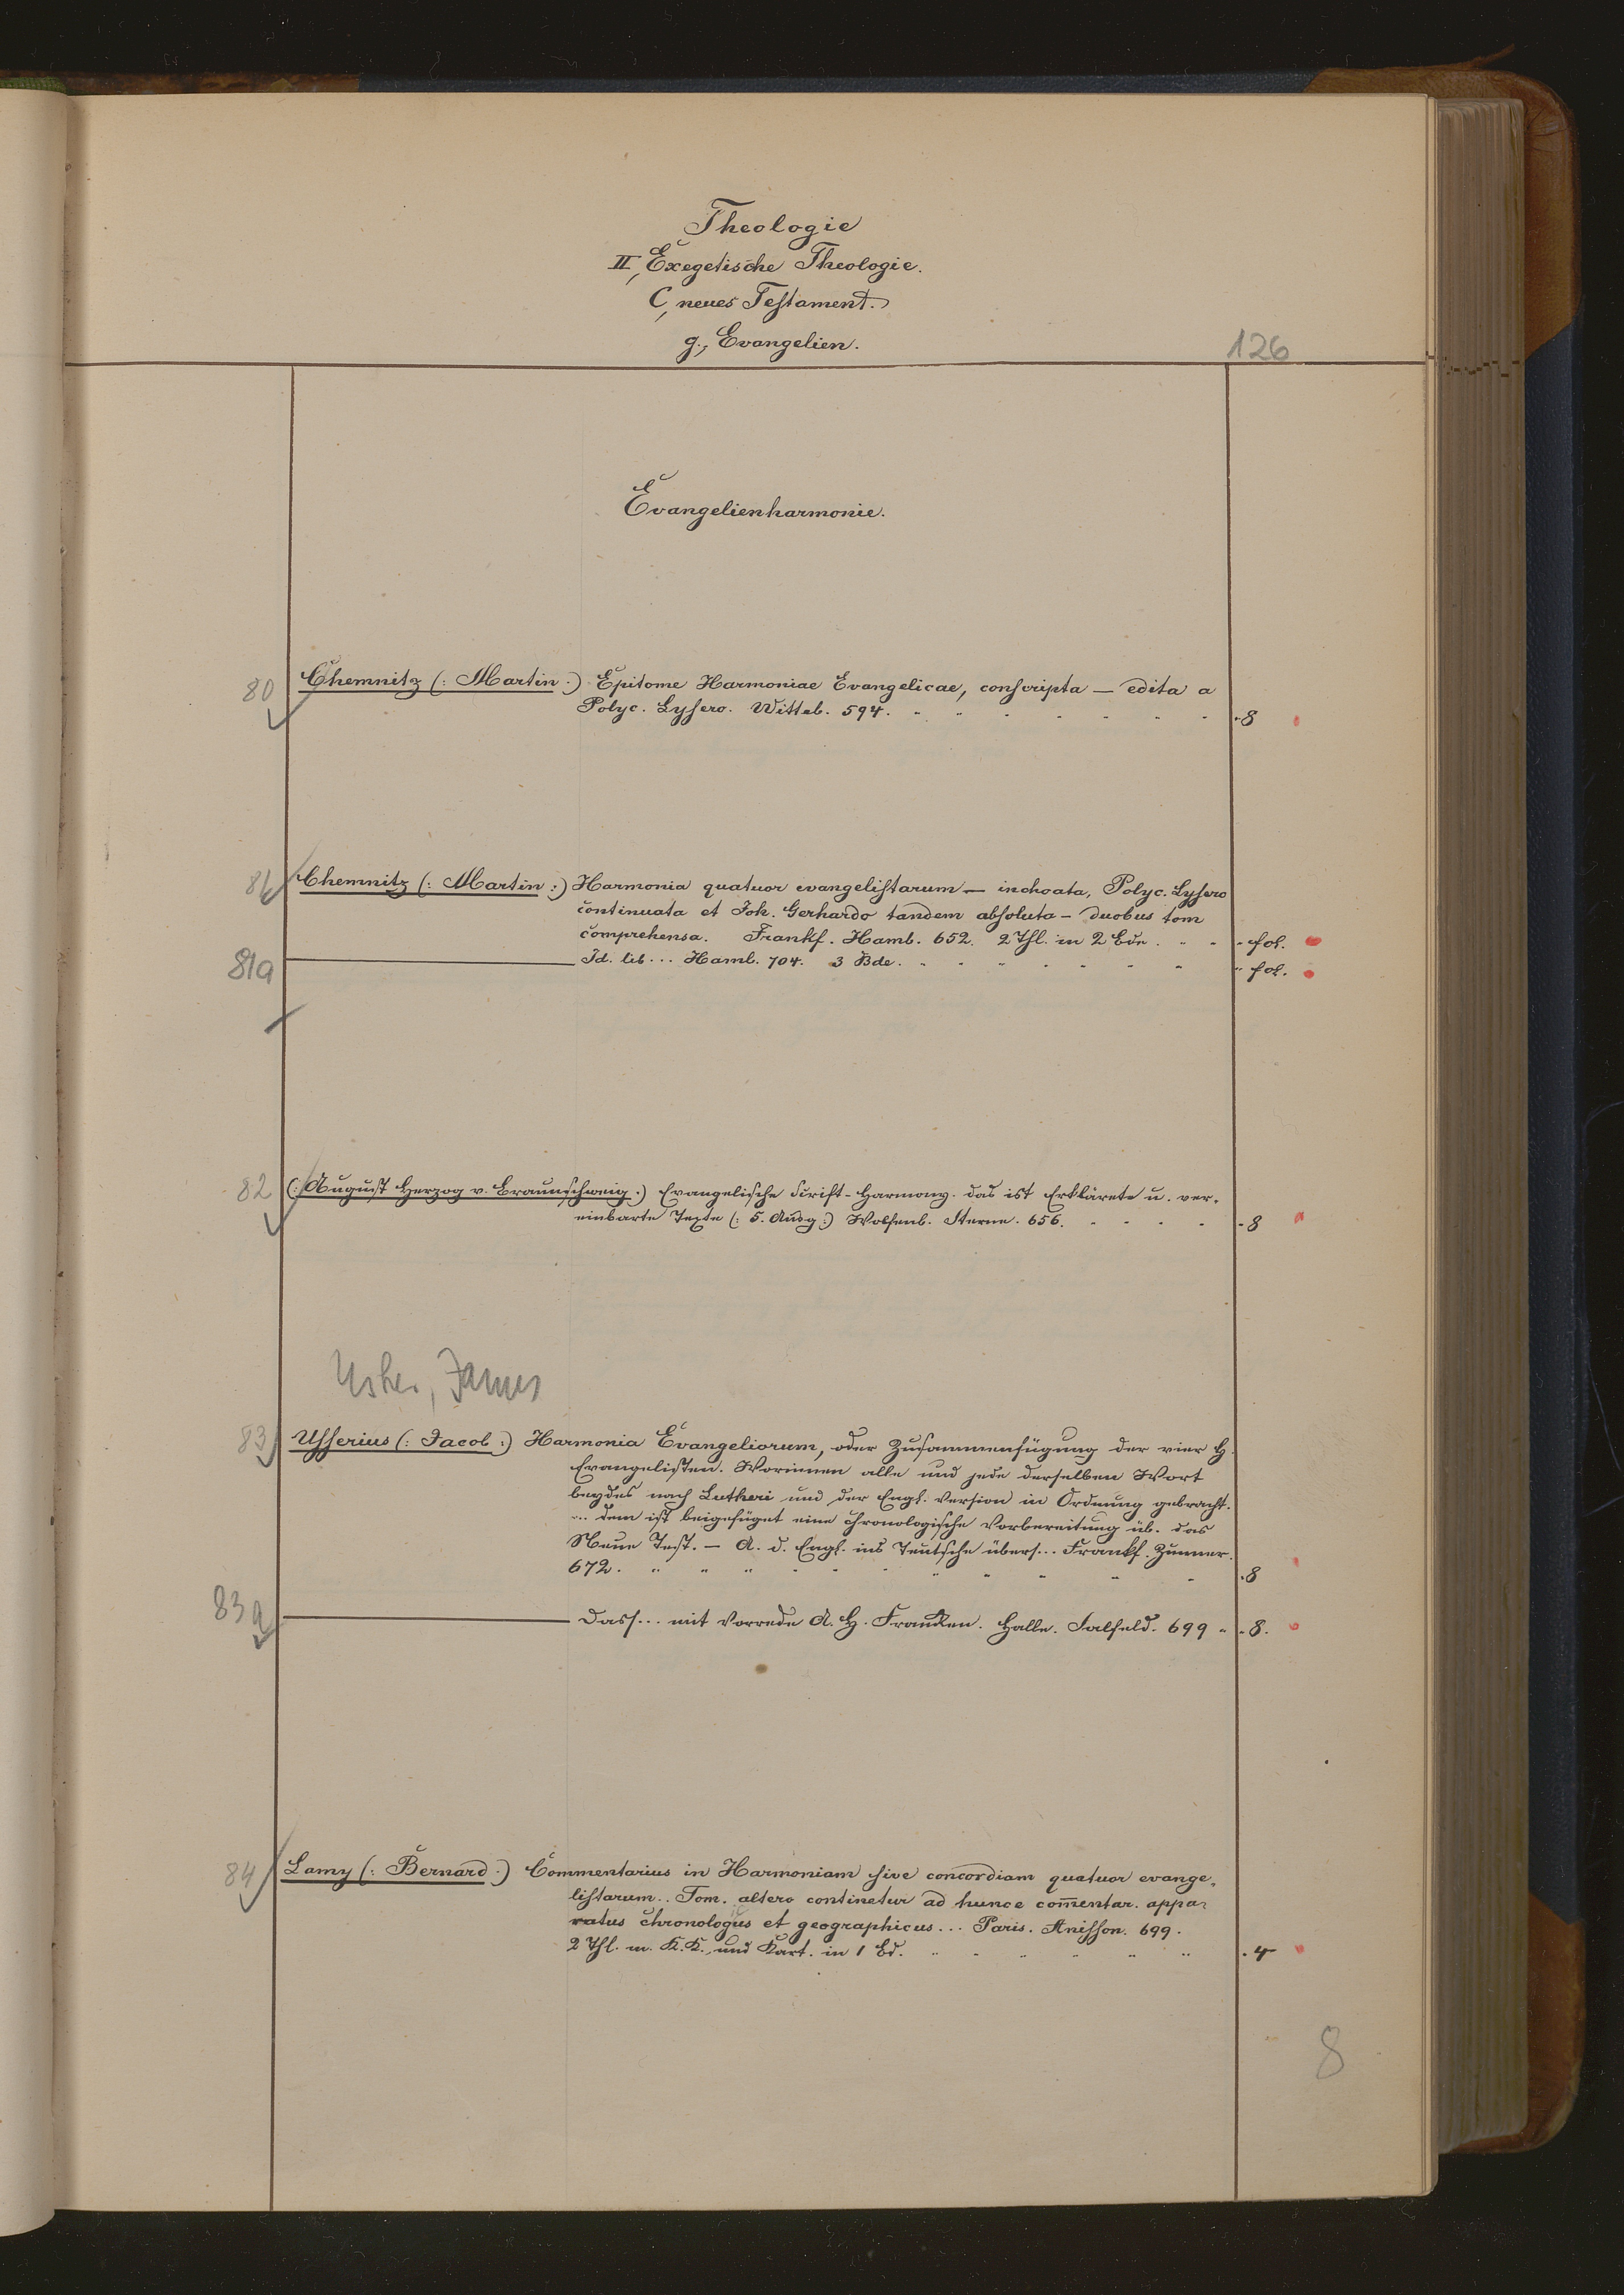 Theologie
II, Exegetische Theologie.
C, neues Testament.
g., Evangelien.
126
Evangelienharmonie.
80 Chemnitz (: Martin :) Epitome Harmoniae Evangelicae, conscripta — edita a
Polyc. Lysero. Witteb. 594. 8
81 Chemnitz (: Martin :) Harmonia quatuor evangelistarum — inchoata, Polyc. Lysero
continuata et Joh. Gerhardo tandem absoluta — duobus tom
comprehensa. Frankf. Hamb. 652. 2 Thl. in 2 Bdn. fol.
81a — Id. lib... Hamb. 704. 3 Bde. fol.
82 (: August Herzog v. Braunschweig :) Evangelische Kirch-Harmony. das ist Erklärete u. ver-
einbarte Texte (: 5. Ausg :) Wolfenb. Sterne. 656. 8
Usher, James
83 Usserius (: Jacob :) Harmonia Evangeliorum, oder Zusammenfügung der vier H.
Evangelisten. Worinnen alle und jede derselben Wort
beydes nach Lutheri und der Engl. Version in Ordnung gebracht.
... dem ist beigefüget eine chronologische Vorbereitung üb. das
Neue Test. — A. d. Engl. ins Teutsche übers... Frankf. Zunner.
672. 8
83a — Dass... mit Vorrede A. H. Franken. Halle. Salfeld. 699 8.
84 Lamy (: Bernard :) Commentarius in Harmoniam sive concordiam quatuor evange-
listarum.. Tom. altero continetur ad hunce com̄entar. appa-
ratus chronologicus et geographicus... Paris. Anisson. 699.
2 Thl. m. K.K. und Kart. in 1 Bd. 4
8